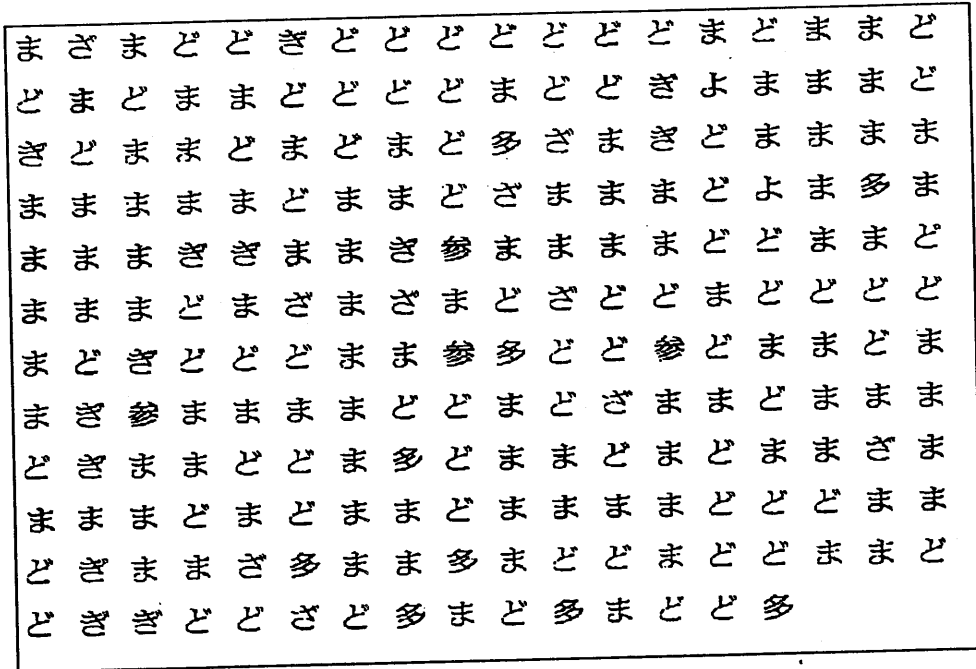 まざまどどぎどどどどどどどまどままど
どまどままどどどどまどどぎよまままど
ぎどままどまどまど多ざまぎどまままま
まままままどままどざまままどよま多ま
まままぎぎままぎ参ままままどどままど
まままどまざまざまどざどどまどどどど
まどぎどどどまま参多どど参どままどま
まぎ参ままままどどまどざままどままま
どぎままどどま多どままどまどままざま
まままどまどままどまままままどどどまま
どぎままざ多まま多まどどまどどままど
どぎぎどどざど多まど多まどど多